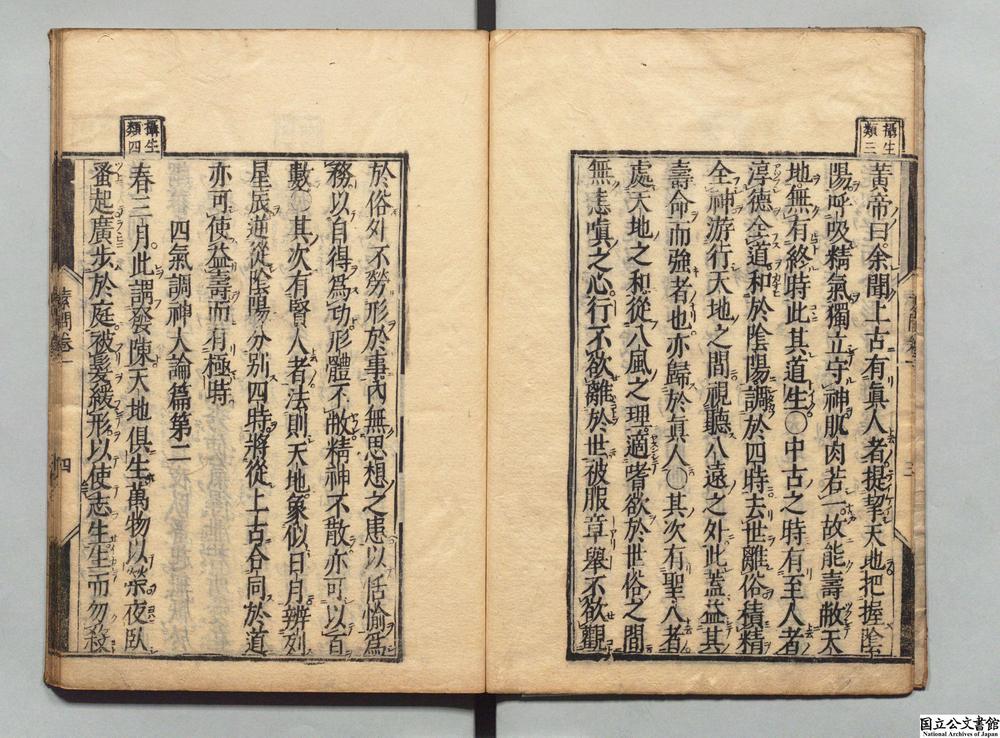 攝生
類三
黃帝曰余聞上古有眞人者提挈天地把握陰
陽呼吸精氣獨立守神肌肉若一故能壽敝天
地無有終時此其道生○中古之時有至人者
淳德全道和於陰陽調於四時去世離俗積精
全神游行天地之間視聽八遠之外此蓋益其
壽命而強者也亦歸於眞人○其次有聖人者
處天地之和從八風之理適嗜欲於世俗之間
無恚嗔之心行不欲離於世被服章舉不欲觀
攝生
類四
於俗外不勞形於事內無思想之患以恬愉爲
務以自得爲功形體不敝精神不散亦可以百
數○其次有賢人者法則天地象似日月辨列
星辰逆從陰陽分別四時將從上古合同於道
亦可使益壽而有極時
四氣調神大論篇第二
春三月此謂發陳天地俱生萬物以榮夜臥
蚤起廣步於庭被髮緩形以使志生生而勿殺
素問卷一
四
国立公文書館
National Archives of Japan